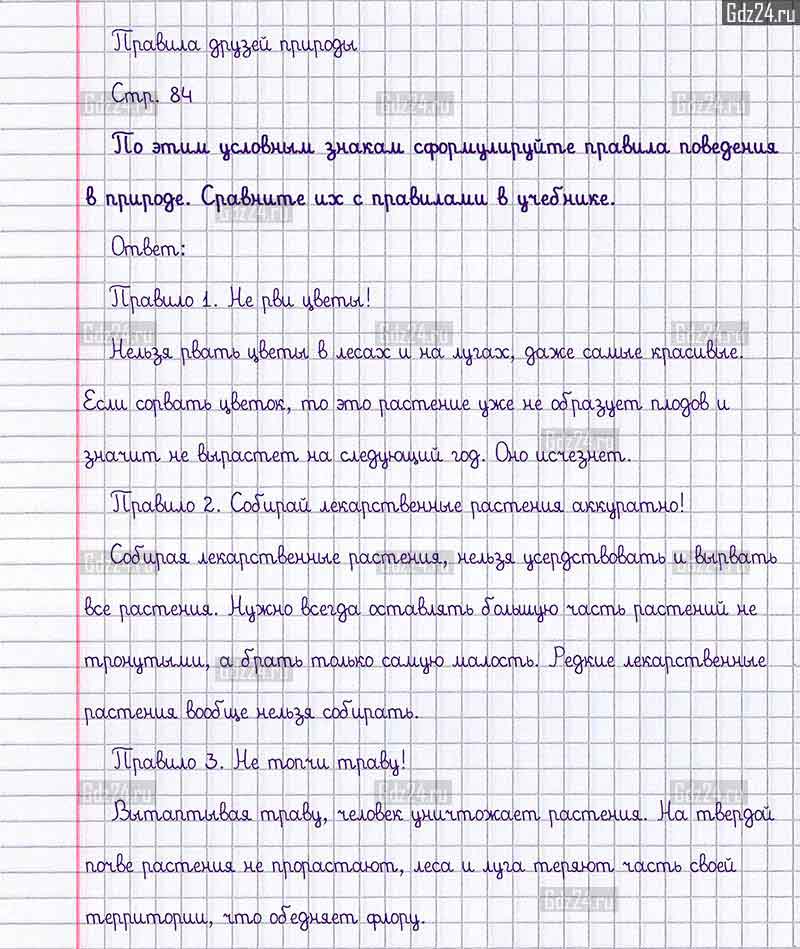 Gdz24.ru
Правила друзей природы
Стр. 84
По этим условным знакам сформулируйте правила поведения
в природе. Сравните их с правилами в учебнике.
Ответ:
Правило 1. Не рви цветы!
Нельзя рвать цветы в лесах и на лугах, даже самые красивые.
Если сорвать цветок, то это растение уже не образует плодов и
значит не вырастет на следующий год. Оно исчезнет.
Правило 2. Собирай лекарственные растения аккуратно!
Собирая лекарственные растения, нельзя усердствовать и вырвать
все растения. Нужно всегда оставлять большую часть растений не
тронутыми, а брать только самую малость. Редкие лекарственные
растения вообще нельзя собирать.
Правило 3. Не топчи траву!
Вытаптывая траву, человек уничтожает растения. На твердой
почве растения не прорастают, леса и луга теряют часть своей
территории, что обедняет флору.